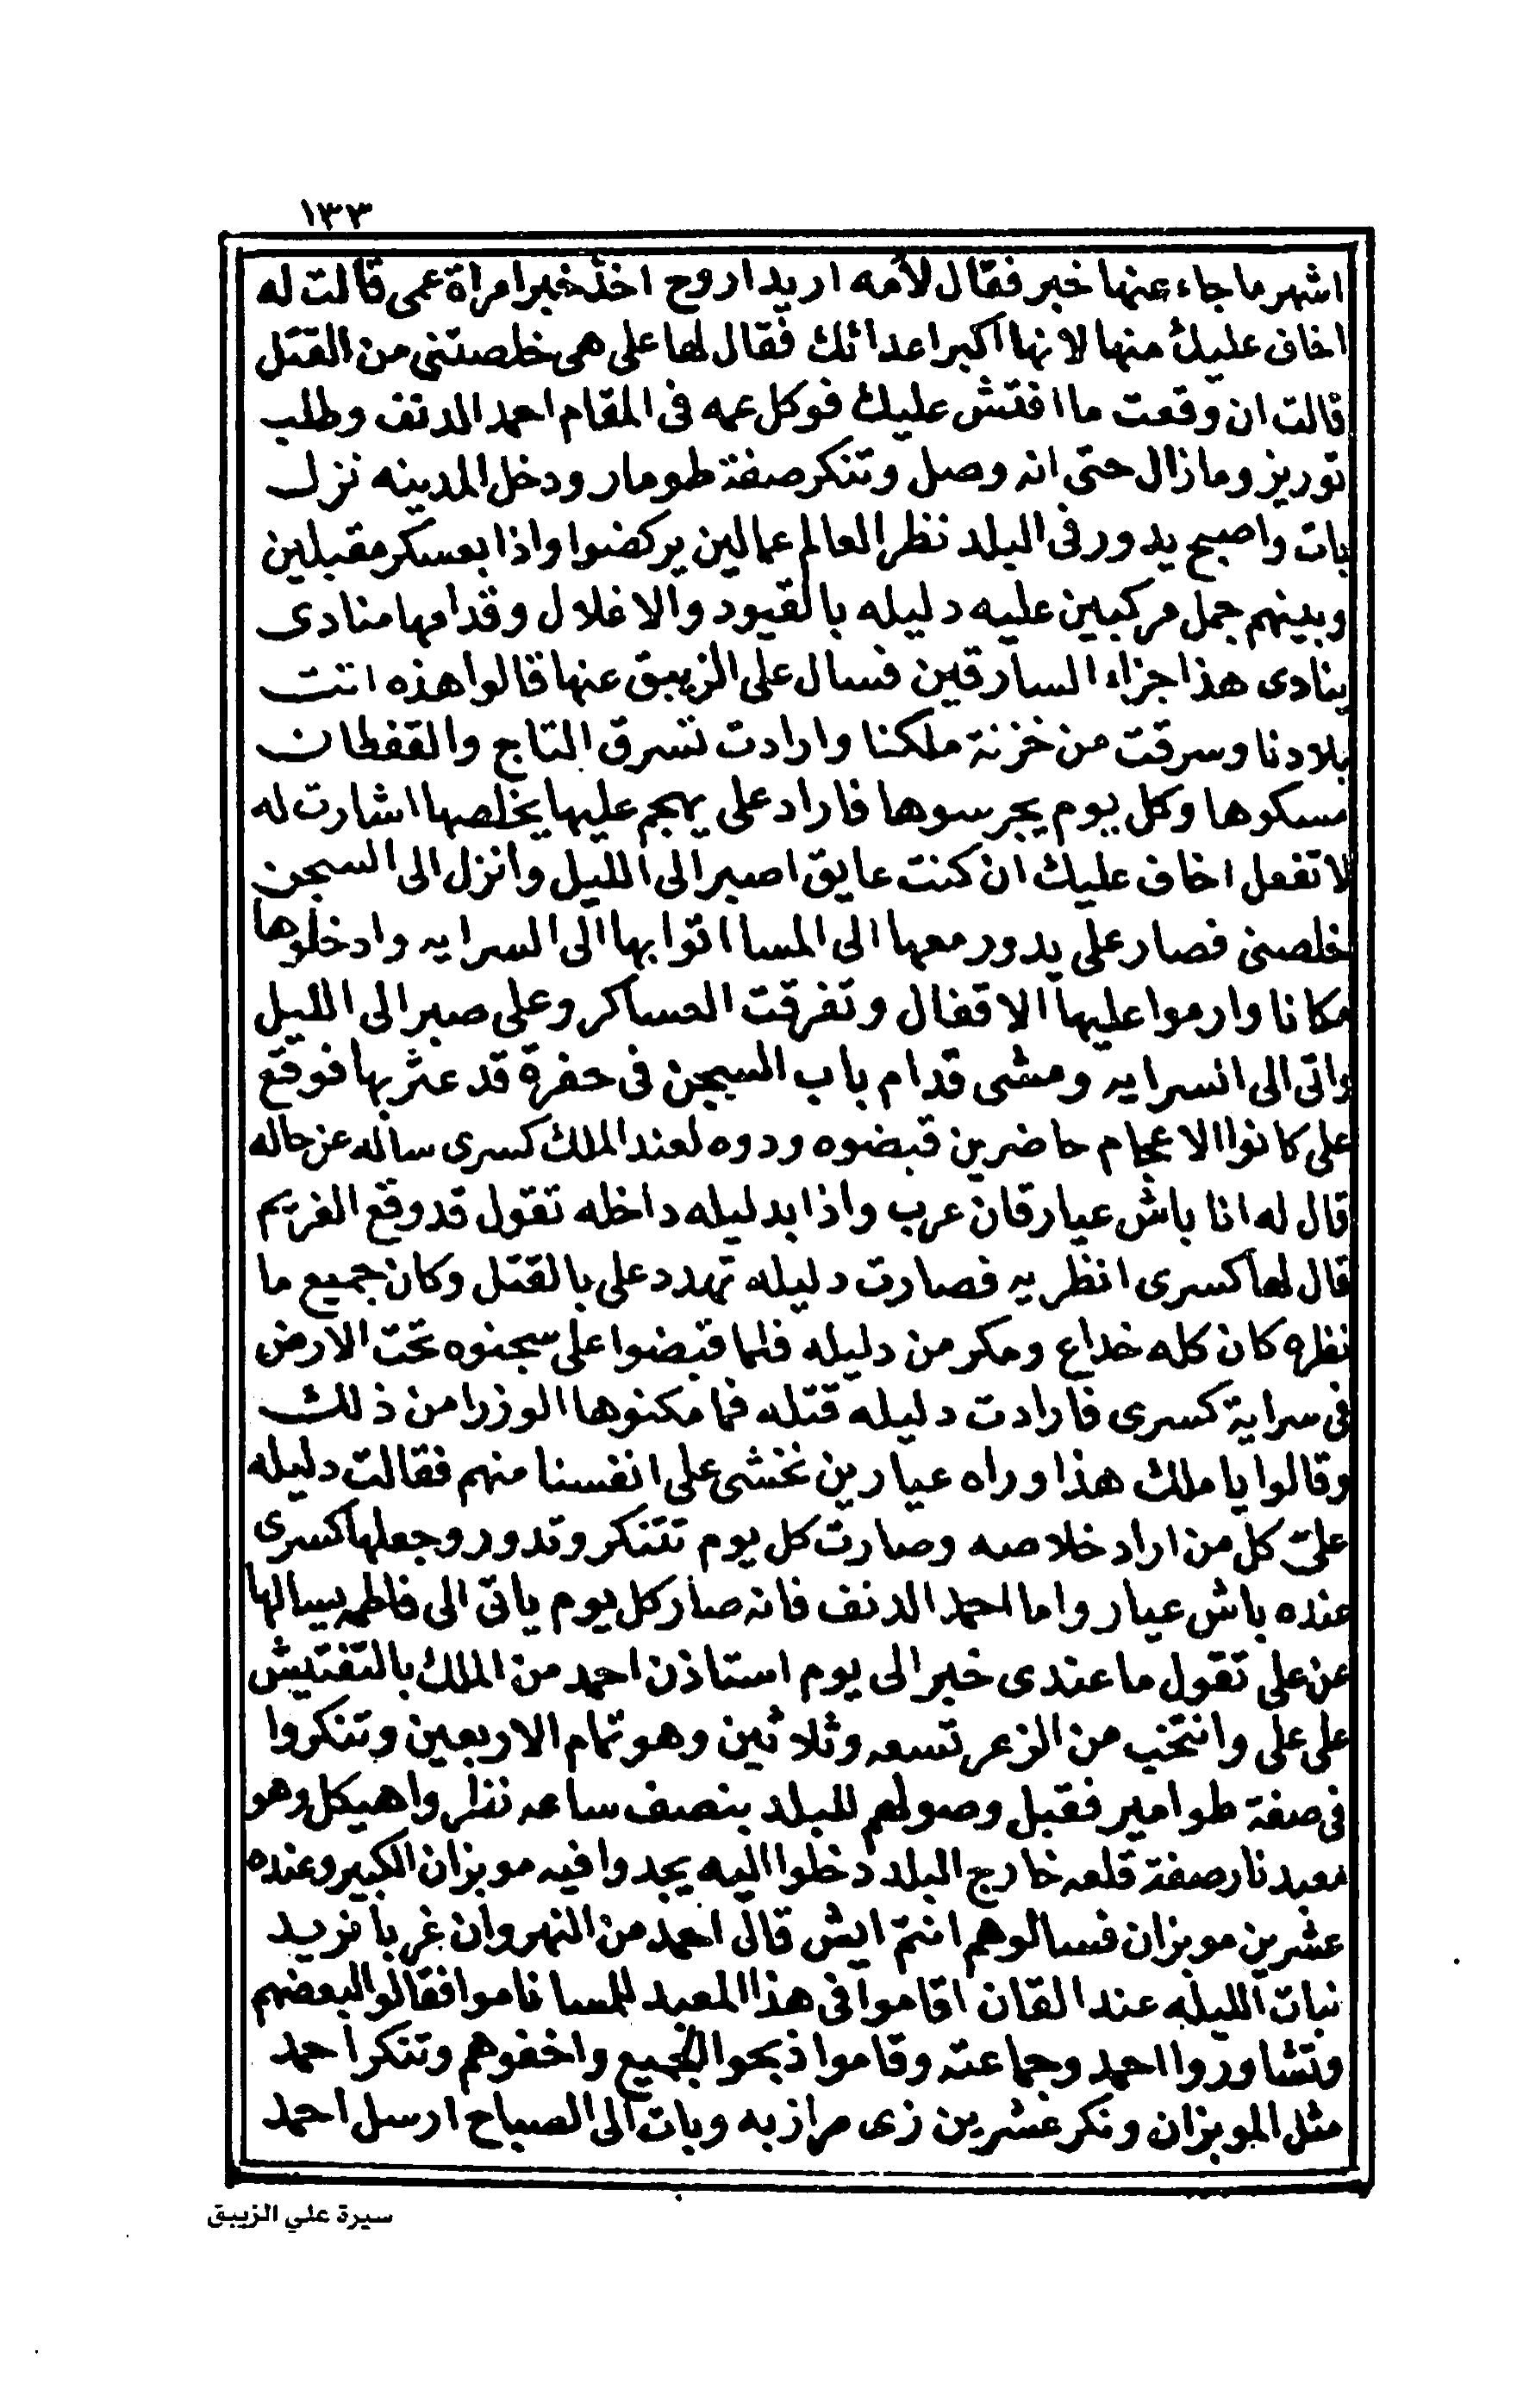 ١٣٣
اشهر ما جاء عنها خبر فقال لأمه اريد اروح اخذ خبر امراة عمى قالت له
اخاف عليك منها لانها اكبر اعدائك فقال لها على هى خلصتنى من القتل
قالت ان وقعت ما افتش عليك فوكل عمه فى المقام احمد الدنف وطلب
توريز وما زال حتى انه وصل وتنكر صفة طومار ودخل المدينه نزل
بات واصبح يدور فى البلد نظر العالم عمالين يركضوا واذا بعسكر مقبلين
وبينهم جمل مركبين عليه دليله بالقيود والاغلال وقدامها منادى
ينادى هذا جزاء السارقين فسال على الزيبق عنها قالوا هذه اتت
بلادنا وسرقت من خزنة ملكنا وارادت تسرق التاج والقفطان
مسكوها وكل يوم يجرسوها فاراد على يهجم عليها يخلصها اشارت له
لا تفعل اخاف عليك ان كنت عايق اصبر الى الليل وانزل الى السجن
خلصنى فصار على يدور معها الى المسا اتوا بها الى السرايه وادخلوها
مكانا وارموا عليها الاقفال وتفرقت العساكر وعلى صبر الى الليل
واتى الى السرايه ومشى قدام باب السجن فى حفرة قد عثر بها فوقع
على كانوا الاعجام حاضرين قبضوه ودوه لعند الملك كسرى ساله عن حاله
قال له انا باش عيار قان عرب واذا بدليله داخله تقول قد وقع الغريم
قال لها كسرى انظر يه فصارت دليله تهدد على بالقتل وكان جميع ما
نظره كان كله خداع ومكر من دليله فلما قبضوا على سجنوه تحت الارض
فى سراية كسرى فارادت دليله قتله فما مكنوها الوزرا من ذلك
وقالوا يا ملك هذا وراه عيارين نخشى على انفسنا منهم فقالت دليله
علىّ كل من اراد خلاصه وصارت كل يوم تتنكر وتدور وجعلها كسرى
عنده باش عيار واما احمد الدنف فانه صار كل يوم ياتى الى فاطمه يسالها
عن على تقول ما عندى خبر الى يوم استاذن احمد من الملك بالتفتيش
على على وانتخب من الزعر تسعه وثلاثين وهو تمام الاربعين وتنكروا
فى صفة طوامير فقبل وصولهم للبلد بنصف ساعه نظروا هيكل وهو
معبد نار صفة قلعه خارج البلد دخلوا اليه يجدوا فيه موبزان الكبير وعنده
عشرين موبزان فسالوهم انتم ايش قال احمد من النهروان غربا نريد
نبات الليله عند القان اقاموا فى هذا المعبد للمسا ناموا فقالوا لبعضهم
وتشاوروا احمد وجماعته وقاموا ذبحوا الجميع واخفوهم وتنكر احمد
مثل الموبزان ونكر عشرين زى مرازبه وبات الى الصباح ارسل احمد
سيرة علي الزيبق